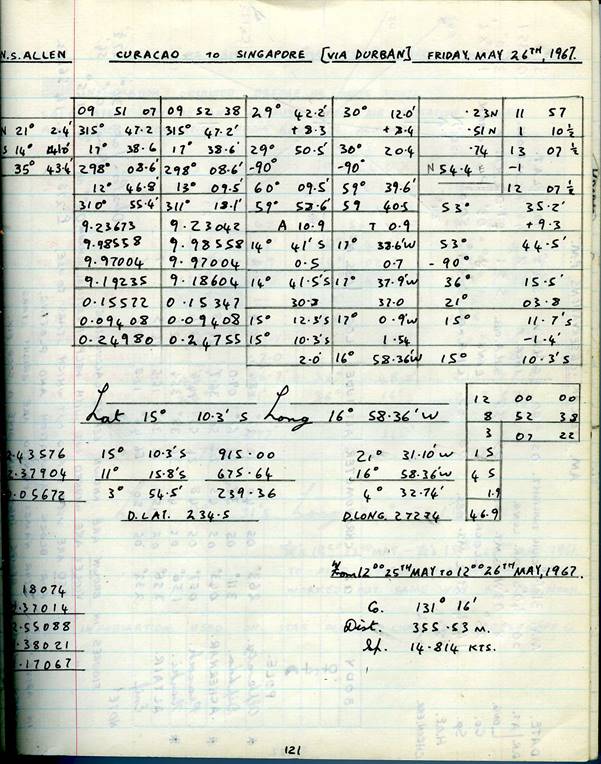 N.S. ALLEN CURACAO TO SINGAPORE [VIA DURBAN] FRIDAY. MAY 26TH, 1967.
09 51 07 09 52 38 29° 42.2' 30° 12.0' .23N 11 57
N 21° 2.4' 315° 47.2 315° 47.2' + 8.3 + 8.4 .51N 1 10½
S 14° 17° 38.6 17° 38.6' 29° 50.5' 30° 20.4 .74 13 07½
35° 43.4' 298° 08.6' 298° 08.6' -90° -90° N 54.4 E -1
12° 46.8 13° 09.5' 60° 09.5' 59° 39.6' 12 07½
310° 55.4' 311° 18.1' 59° 58.6' 59 40.5 53° 35.2'
9.23673 9.23042 A 10.9 T 0.9 + 9.3
9.98558 9.98558 14° 41'S 17° 38.6'W 53° 44.5'
9.97004 9.97004 0.5 0.7 - 90°
9.19235 9.18604 14° 41.5'S 17° 37.9'W 36° 15.5'
0.15572 0.15347 30.8 37.0 21° 03.8
0.09408 0.09408 15° 12.3'S 17° 0.9'W 15° 11.7's
0.24980 0.24755 15° 10.3's 1.54 -1.4'
2.0' 16° 58.36'W 15° 10.3's
Lat 15° 10.3' S Long 16° 58.36' W
12 00 00
8 52 38
3 07 22
45
1.9
46.9
2.43576 15° 10.3's 915.00 21° 31.10'W
2.37904 11° 15.8's 675.64 16° 58.36'W
0.05672 3° 54.5' 239.36 4° 32.74'
D.LAT. 234.5 D.LONG. 272.74
From 12°° 25TH MAY TO 12°° 26TH MAY, 1967.
18074 Co. 131° 16'
.37014 Dist. 355.53 M.
2.55088 Sp. 14.814 KTS.
.38021
.17067
121